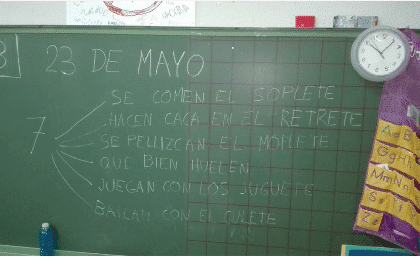 3
23 DE MAYO
7
SE COMEN EL SOPLETE
HACEN CACA EN EL RETRETE
SE PELLIZCAN EL MOFLETE
QUE BIEN HUELEN
JUEGAN CON LOS JUGUETE
BAILAN CON EL CULETE
A a B
G g H
M m N n
S s
Z z